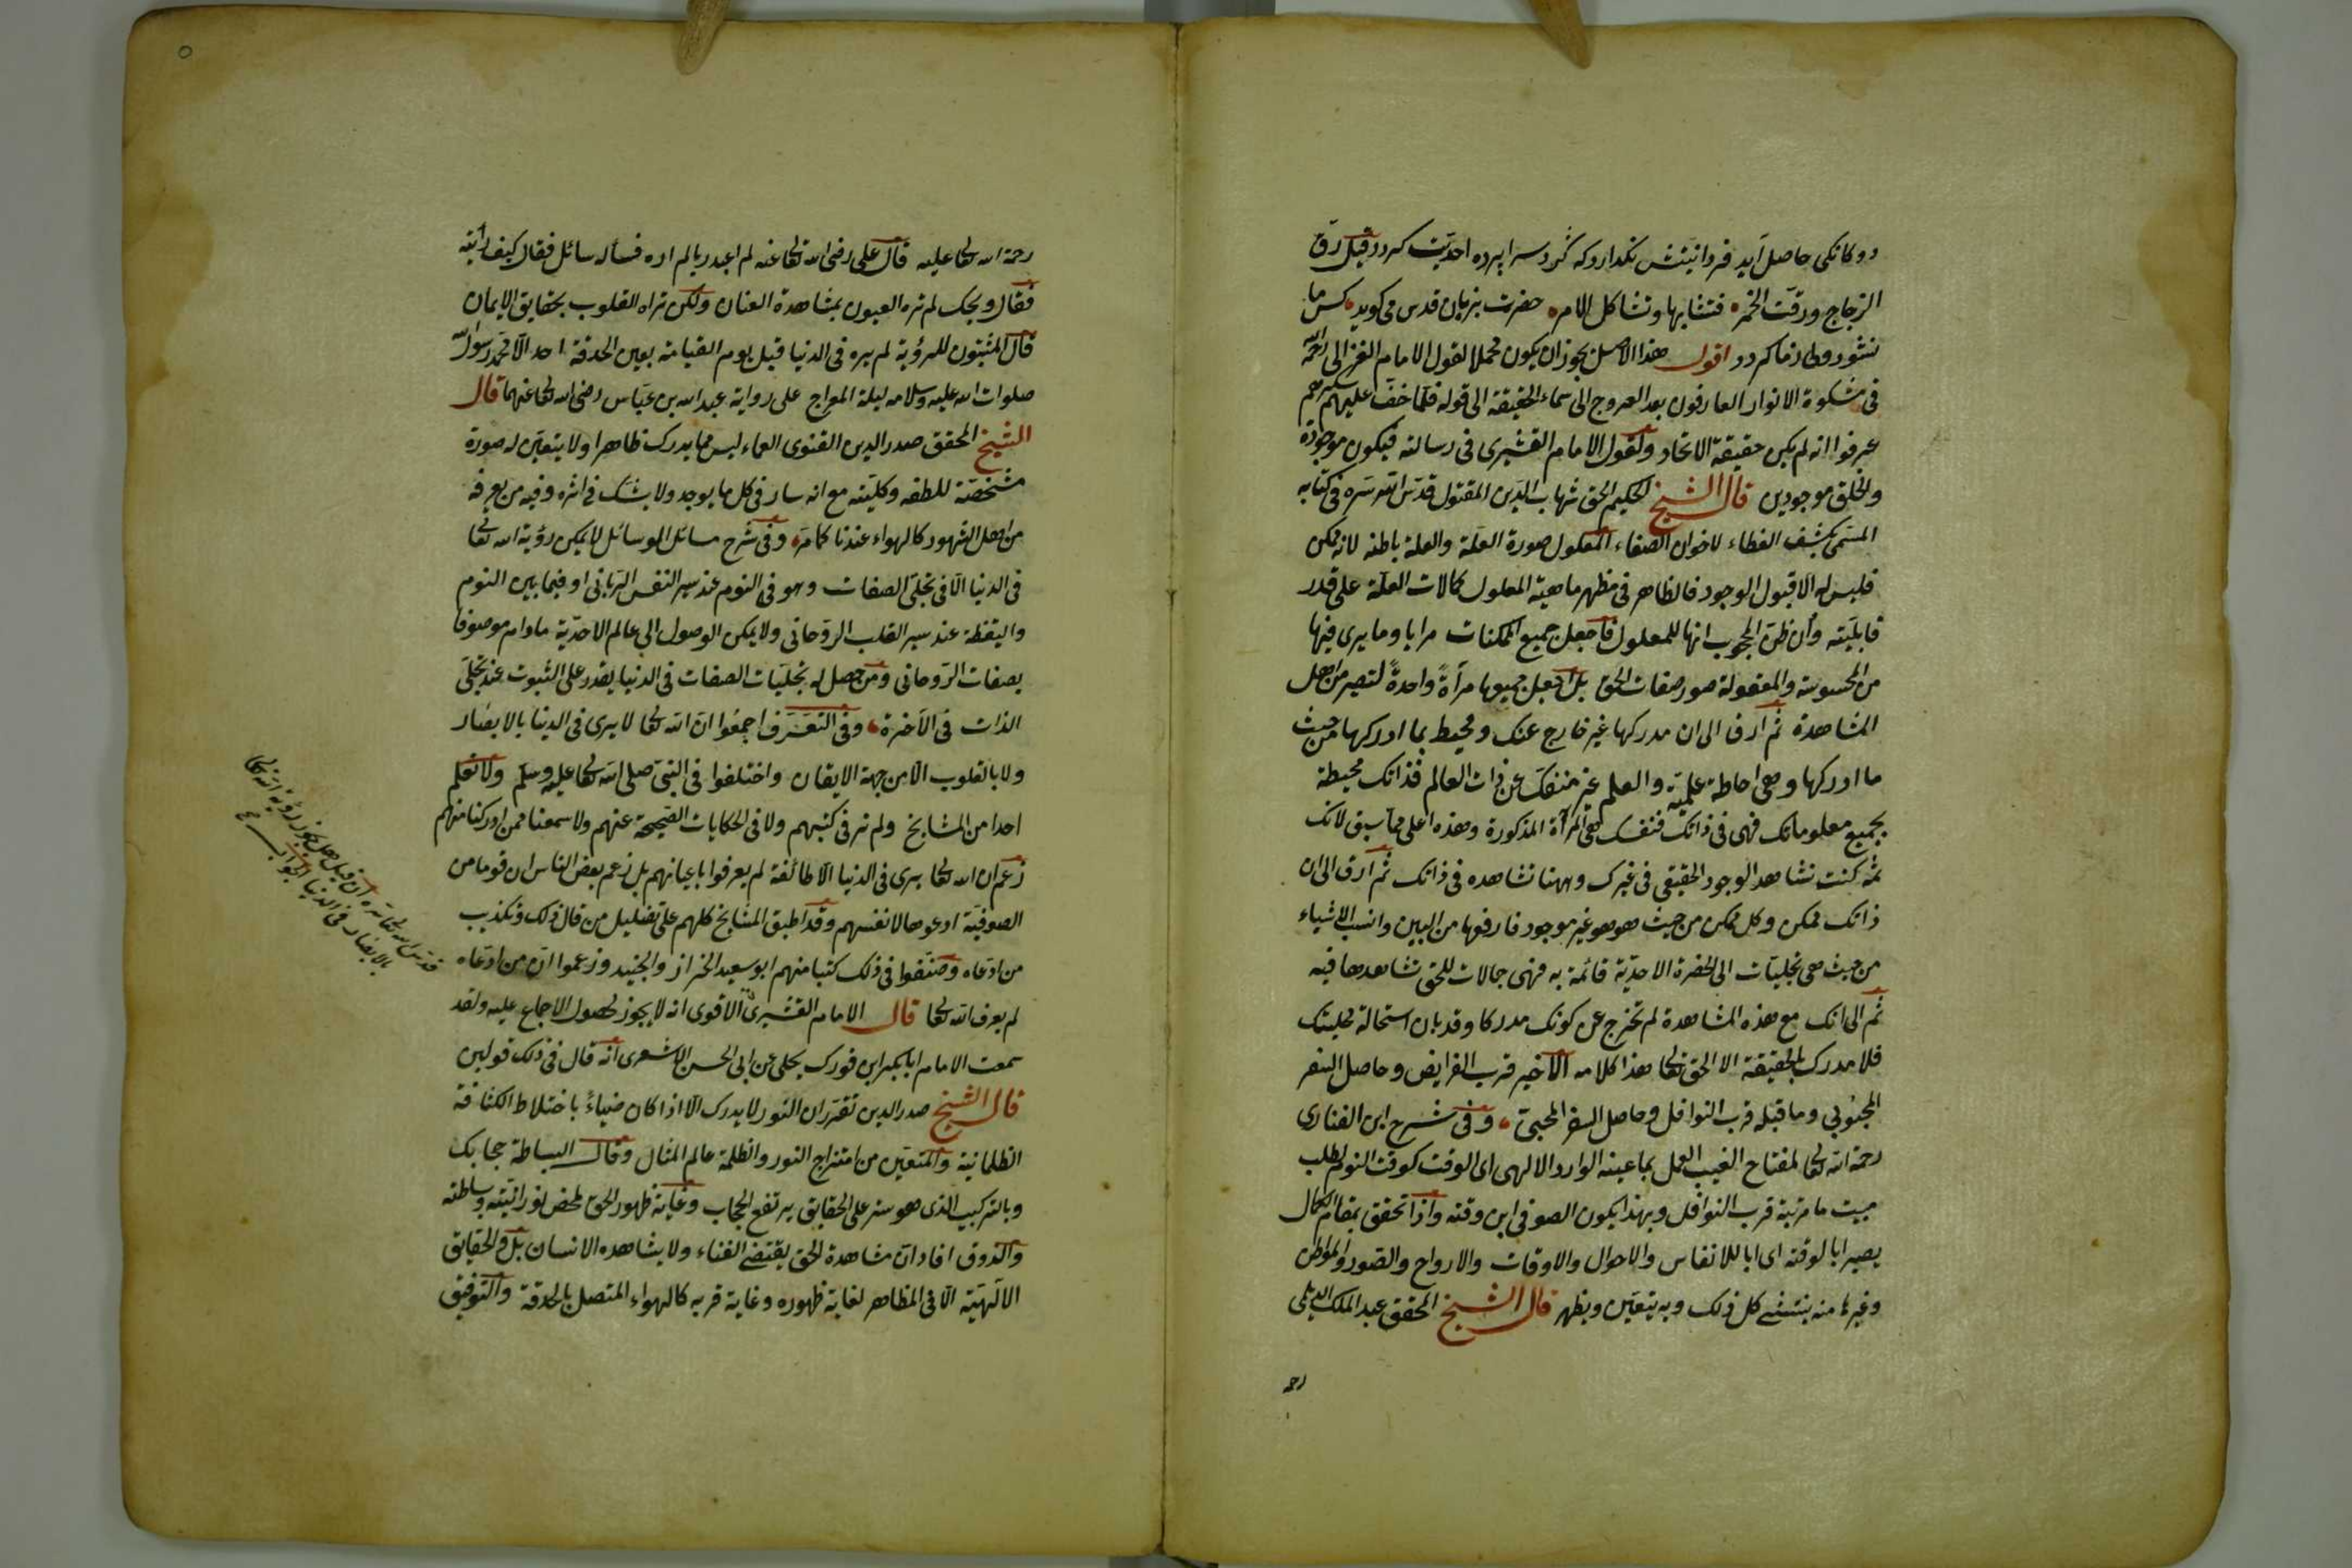 دوكانكى حاصل آيد فردانيتش نكذارد كه كرد سراپرده احديت كردد وقيل رق
الزجاج ورقت الخمر فتشابها وتشاكل الامر حضرت بزبان قدس مى كويد كس ما
نشود وطا ما كردد اقول هذا الاصل يجوز ان يكون محملا لقول الامام الغزالى رحمه الله
فى مشكوة الانوار العارفون بعد العروج الى سماء الحقيقة الى قوله فلما خف عليهم سكرهم
عرفوا انه لم يكن حقيقة الاتحاد ولقول الامام القشيرى فى رسالته فيكون موجودة
والخلق موجودين قال الشيخ الحكيم الحق شهاب الدين المقتول قدس الله سره فى كتابه
المسمى بكشف الغطاء لاخوان الصفاء المعلول صورة العلة والعلة باطنه لانه ممكن
فليس له الا قبول الوجود فالظاهر فى مظهر ماهية المعلول كمالات العلة على قدر
قابليته وان ظن المحجوب انها للمعلول فاجعل جميع الممكنات مرايا وما يرى فيها
من المحسوسة والمعقولة صور صفات الحق بل اجعل جميعها مرآة واحدة لتصير من اهل
المشاهدة ثم ارق الى ان مدركها غير خارج عنك ومحيط بما ادركها من حيث
ما ادركها وهى احاطة علمية والعلم غير منفك عن ذات العالم فذاتك محيطة
بجميع معلوماتك فهى فى ذاتك فنفسك هى المرآة المذكورة وهذه اعلى مما سبق لانك
ثمه كنت تشاهد الوجود الحقيقى فى غيرك وههنا تشاهده فى ذاتك ثم ارق الى ان
ذاتك ممكن وكل ممكن من حيث هو هو غير موجود فارفعها من البين وانسب الاشياء
من حيث هى تجليات الى الحضرة الاحدية قائمة به فهى جمالات للحق تشاهدها فيه
ثم الى انك مع هذه المشاهدة لم تخرج عن كونك مدركا وقد بان استحالة محليتك
فلا مدرك بالحقيقة الا الحق تعالى هذا كلامه الاخير قرب الفرايض وحاصل السفر
المحبوبى وما قبله قرب النوافل وحاصل السفر المحبى وفى شرح ابن الفنارى
رحمة الله تعالى لمفتاح الغيب العمل بما عينه الوارد الالهى اى الوقت كوقت النوم لطلب
مبيت ما مرتبة قرب النوافل وبهذا يكون الصوفى ابن وقته واذا تحقق بمقام الكمال
يصير ابا لوقته اى ابا للانفاس والاحوال والاوقات والارواح والصور والمواطن
وغيرها منه ينتشى كل ذلك وبه يتعين ويظهر قال الشيخ المحقق عبد الملك الديلمى
رحمة
رحمة الله تعالى عليه قال على رضى الله تعالى عنه لم اعبد ربا لم اره فسأله سائل فقال كيف رأيته
فقال ويحك لم تره العيون بمشاهدة العنان ولكن تراه القلوب بحقايق الايمان
قال المثبتون للرؤية لم يره فى الدنيا قبل يوم القيامة بعين الحدقة احد الا محمد رسول الله
صلوات الله عليه وسلامه ليلة المعراج على رواية عبد الله بن عباس رضى الله تعالى عنهما قال
الشيخ المحقق صدر الدين القنوى العماء ليس مما يدرك ظاهرا ولا يتعين له صورة
مشخصة للطفه وكليته مع انه سار فى كل ما يوجد ولا يشك فى اثره وفيه من يعرفه
من اهل الشهود كالهواء عندنا كما مر وفى شرح مسائل الوسائل لا يمكن رؤية الله تعالى
فى الدنيا الا فى تجلى الصفات وهو فى النوم عند سير النفس الربانى او فيما بين النوم
واليقظة عند سير القلب الروحانى ولا يمكن الوصول الى عالم الاحدية مادام موصوفا
بصفات الروحانى ومن حصل له تجليات الصفات فى الدنيا يقدر على الثبوت عند تجلى
الذات فى الآخرة وفى التعرف اجمعوا ان الله تعالى لا يرى فى الدنيا بالابصار
ولا بالقلوب الا من جهة الايقان واختلفوا فى النبى صلى الله تعالى عليه وسلم ولا نعلم
احدا من المشايخ ولم نر فى كتبهم ولا فى الحكايات الصحيحة عنهم ولا سمعنا ممن ادركنا منهم
زعم ان الله تعالى يرى فى الدنيا الا طائفة لم يعرفوا باعيانهم بل زعم بعض الناس ان قوما من
الصوفية ادعوها لانفسهم وقد اطبق المشايخ كلهم على تضليل من قال ذلك وتكذيب
من ادعاه وصنفوا فى ذلك كتبا منهم ابو سعيد الخراز والجنيد وزعموا ان من ادعاه
لم يعرف الله تعالى قال الامام القشيرى الاقوى انه لا يجوز لحصول الاجماع عليه ولقد
سمعت الامام ابا بكر ابن فورك يحكى عن ابى الحسن الاشعرى انه قال فى ذلك قولين
قال الشيخ صدر الدين تقرر ان النور لا يدرك الا اذا كان ضياء باختلاط الكثافة
الظلمانية والمتعين من امتزاج النور والظلمة عالم المثال وقال البساطة حجابك
وبالتركيب الذى هو ستر على الحقايق يرتفع الحجاب وغاية ظهور الحق لمحض نورانيته وبساطته
والذوق افاد ان مشاهدة الحق يقتضى الفناء ولا يشاهده الانسان بل والحقايق
الالهية الا فى المظاهر لغاية ظهوره وغاية قربه كالهواء المتصل بالحدقة والتوفيق
قدس الله تعالى سره ان قيل هل يجوز رؤية الله تعالى
بالابصار فى الدنيا الجواب